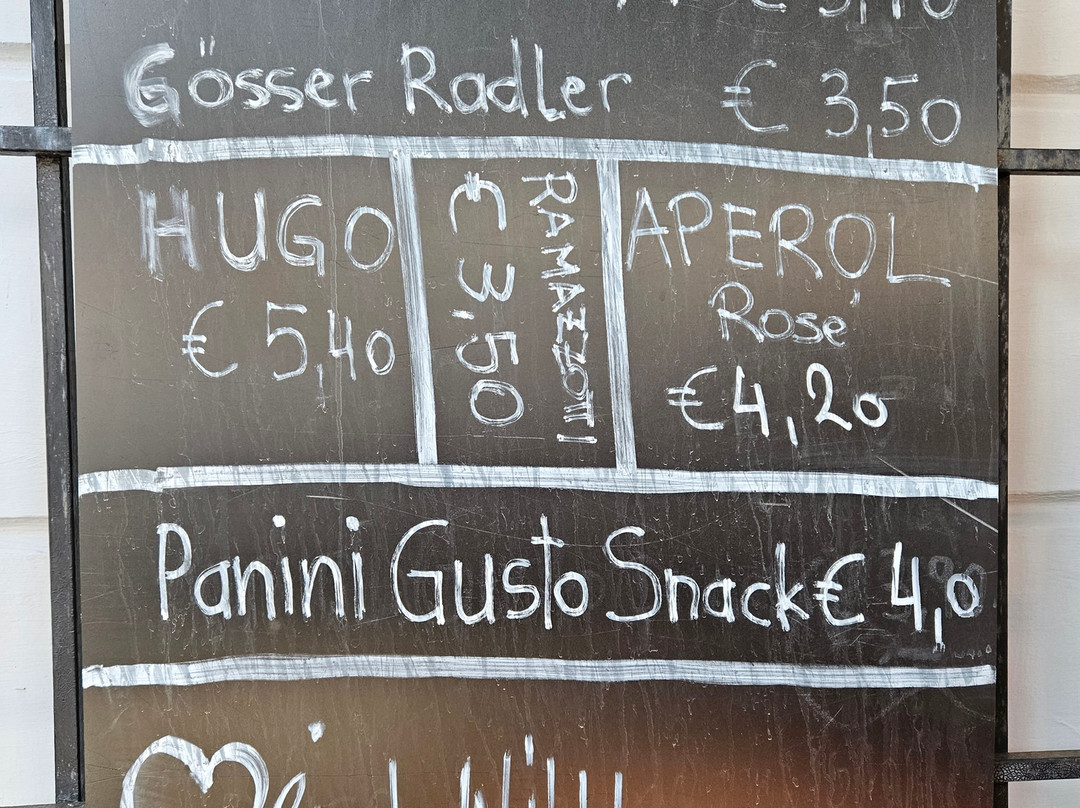 Gösser Radler € 3,50
HUGO
€ 5,40
RAMAZZOTTI
€ 3,50
APEROL
Rose
€ 4,20
Panini Gusto Snack € 4,0